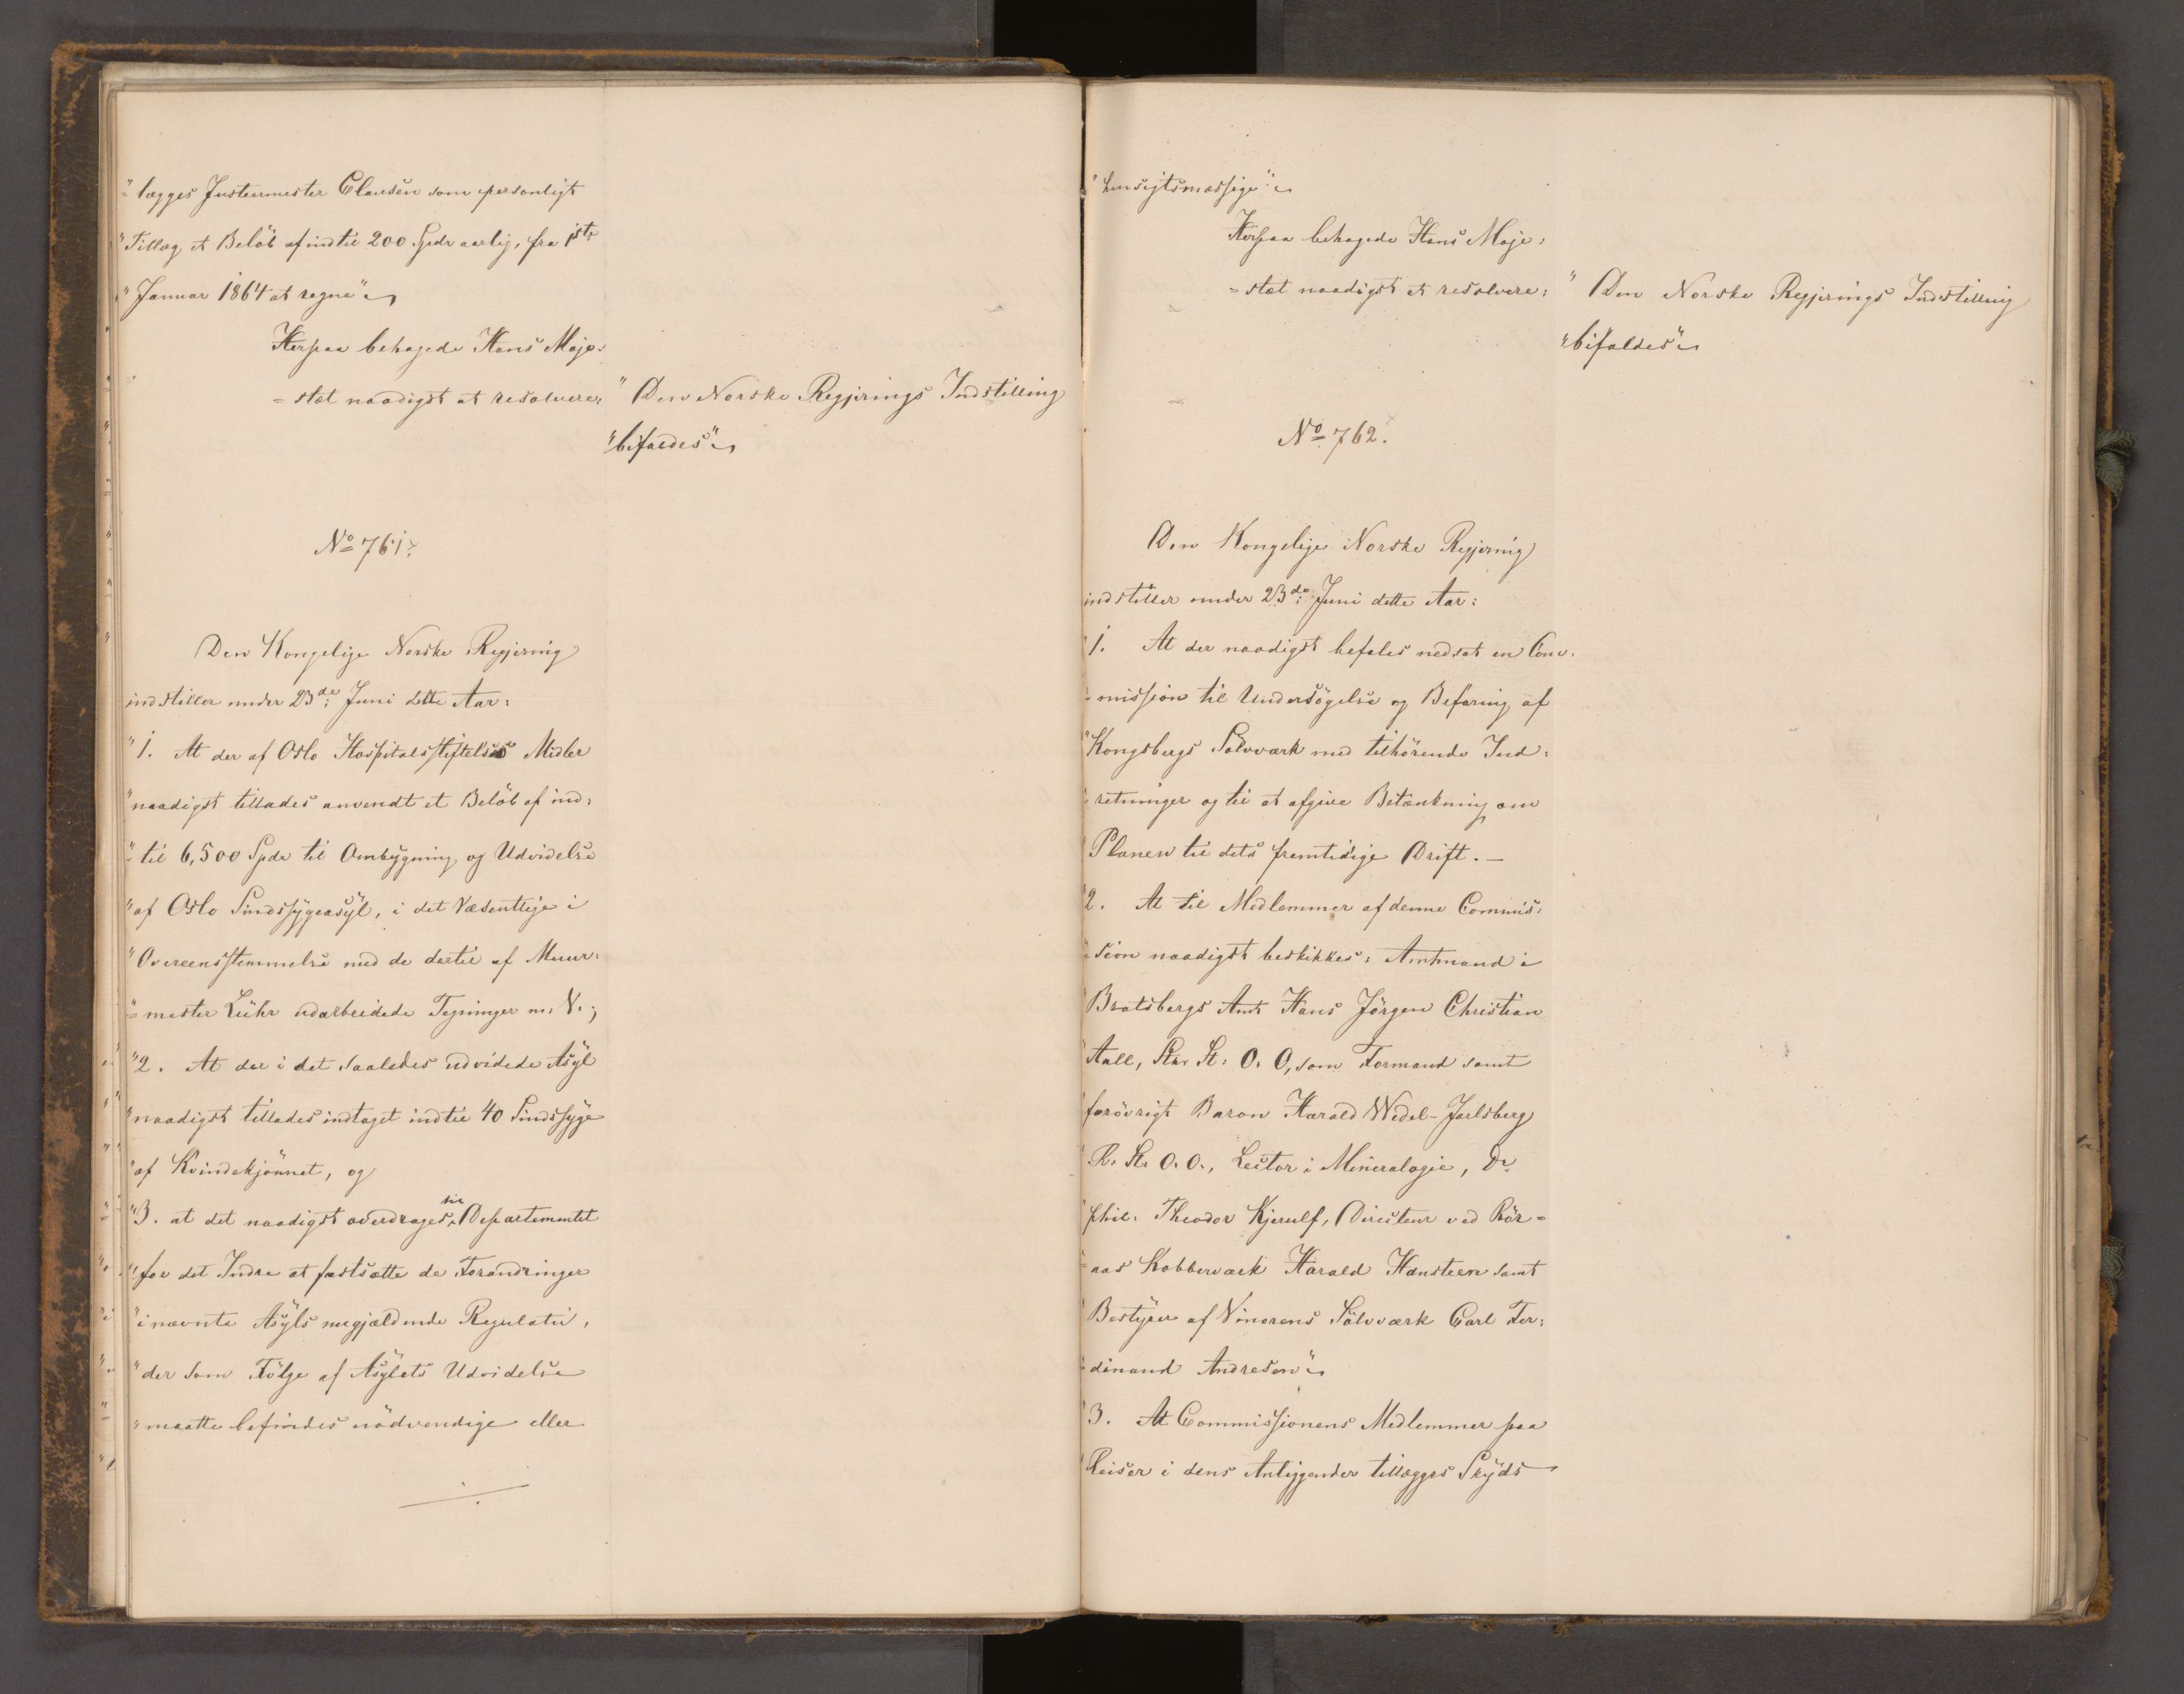 "= lægges Justeermester Clausen som personligt
"Tillæg et Beløb af indtil 200 Spdr aarlig, fra 1ste
"Januar 1864 at regne"
Herpaa behagede Hans Maje=
=stæt naadigst at resolvere: "Den Norske Regjerings Indstilling
"bifaldes"
No 761.
Den Kongelige Norske Regjering
indstiller under 23de Juni dette Aar:
"1. At der af Oslo Hospitalsstiftelses Midler
"naadigst tillades anvendt et Beløb af ind=
"=til 6,500 Spdr til Ombygning og Udvidelse
"af Oslo Sindssygeasyl, i det Væsentlige i
"Overeensstemmelse med de dertil af Muur=
"=mester Lühr udarbeidede Tegninger m. V.;
"2. At der i det saaledes udvidede Asyl
"naadigst tillades indtaget indtil 40 Sindssyge
"af Kvindekjønnet, og
"3. at det naadigst overdrages til Departementet
"for det Indre at fastsætte de Forandringer
"i nævnte Asyls nugjældende Regulativ,
"der som Følge af Asylets Udvidelse
"maatte befindes nødvendige eller
"hensigtsmæssige"
Herpaa behagede Hans Maje=
=stæt naadigst at resolvere: "Den Norske Regjerings Indstilling
"bifaldes"
No 762.
Den Kongelige Norske Regjering
indstiller under 23de Juni dette Aar:
"1. At der naadigst befales nedsat en Com=
"=mission til Undersøgelse og Befaring af
"Kongsbergs Sølvværk med tilhørende Ind=
"=retninger og til at afgive Betænkning om
"Planen til dets fremtidige Drift.—
"2. At til Medlemmer af denne Commis=
"=sion naadigst beskikkes: Amtmand i
"Bratsbergs Amt Hans Jørgen Christian
"Aall, St: O. O, som Formand samt
"forøvrigt Baron Harald Wedel-Jarlsberg
"R. St. O. O., Lector i Mineralogie, Dr
"phil. Theodor Kjerulf, Directeur ved Rør=
"=aas Kobberværk Harald Hansteen samt
"Bestyrer af Vinorens Sølvværk Carl Fer=
"=dinand Andresen"
"3. At Commissionens Medlemmer paa
"Reiser i dens Anliggender tillægges Skyds